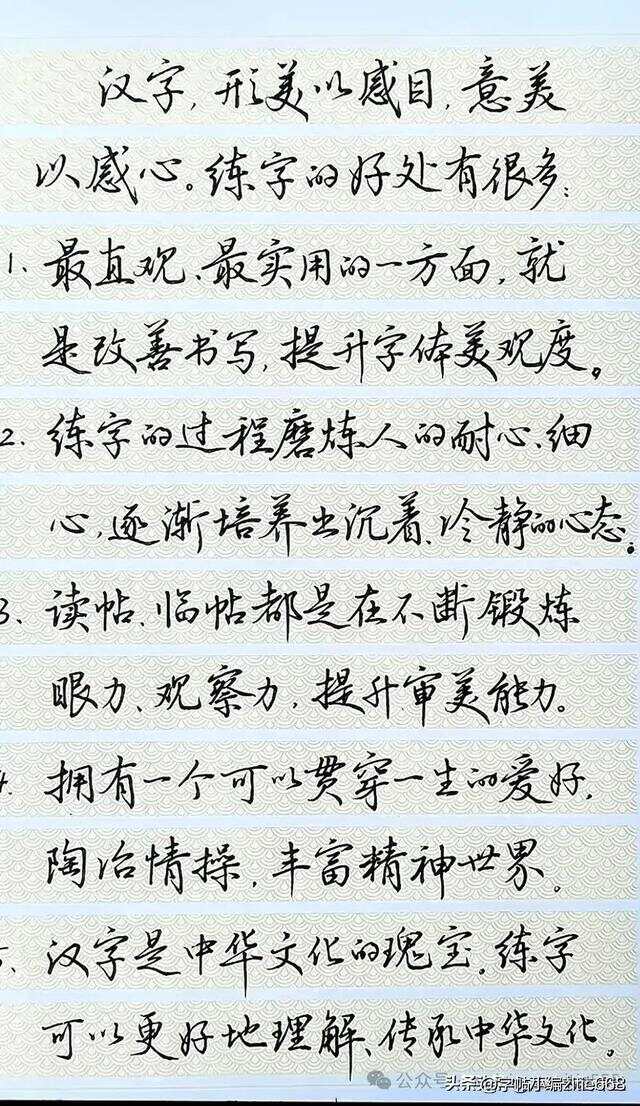 汉字,形美以感目,意美
以感心。练字的好处有很多:
1.最直观、最实用的一方面,就
是改善书写,提升字体美观度。
2.练字的过程磨炼人的耐心、细
心,逐渐培养出沉着、冷静的心态。
3.读帖、临帖都是在不断锻炼
眼力、观察力,提升审美能力。
4.拥有一个可以贯穿一生的爱好,
陶冶情操,丰富精神世界。
5.汉字是中华文化的瑰宝,练字
可以更好地理解、传承中华文化。
公众号
头条@字帖小编